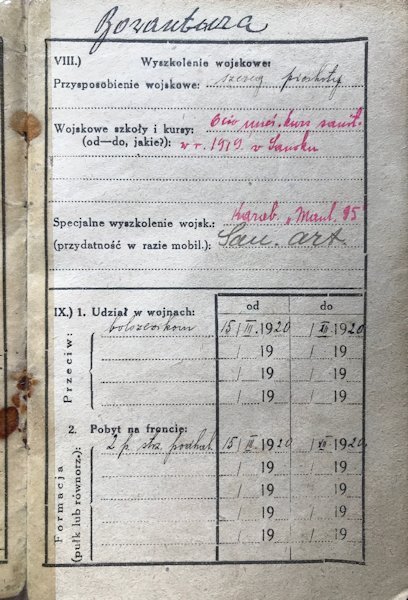 VIII.) Wyszkolenie wojskowe:
Przysposobienie wojskowe: szereg piechoty
Wojskowe szkoły i kursy: 6cio mieś. kurs sanit.
(od—do, jakie?): w r. 1919. w Sanoku
Specjalne wyszkolenie wojsk.: Karab. „Manl. 95"
(przydatność w razie mobil.): San. art.
od do
IX.) 1. Udział w wojnach:
Przeciw:
bolszewikom 15/III.1920 / XII 1920
/ 19 / 19
/ 19 / 19
/ 19 / 19
2. Pobyt na froncie:
Formacja
(pułk lub równorz.):
2 p. strz. podhal. 15/III.1920 / XII 1920
/ 19 / 19
/ 19 / 19
/ 19 / 19
/ 19 / 19